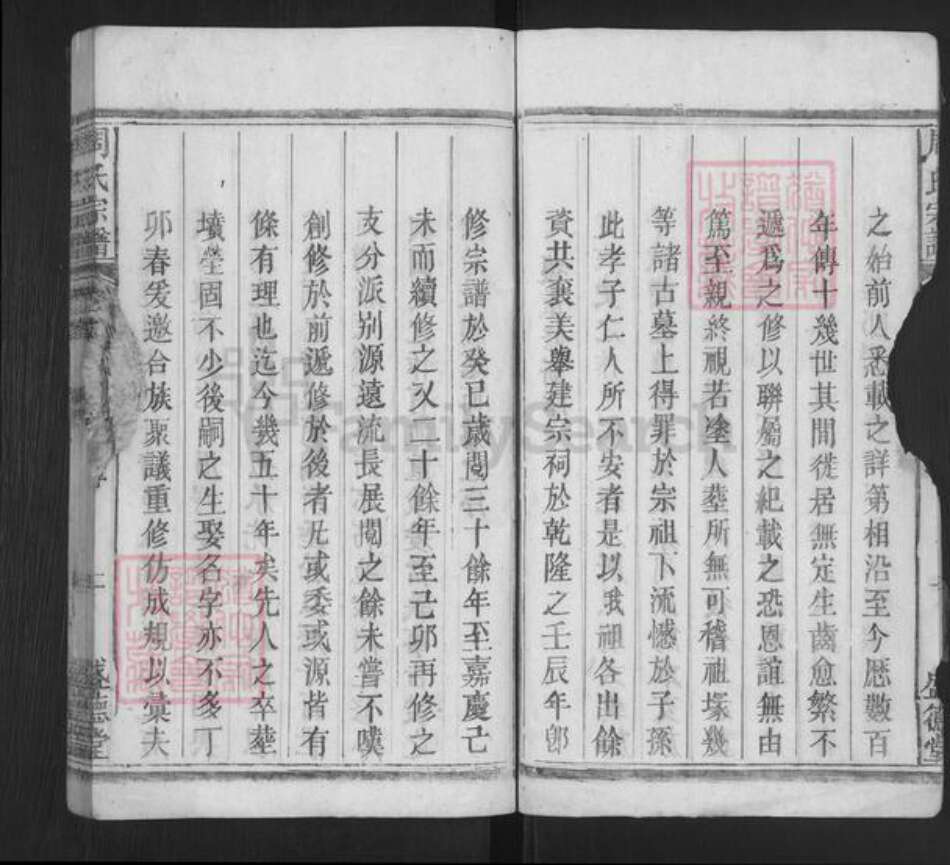 之始前人悉載之詳第相沿至今歷數百
年傳十幾世其間徙居無定生齒愈繁不
遞為之修以聯屬之紀載之恐恩誼無由
篤至親終視若塗人塟所無可稽祖塚幾
等諸古墓上得罪於宗祖下流憾於子孫
此孝子仁人所不安者是以我祖各出餘
資共襄美舉建宗祠於乾隆之壬辰年即
修宗譜於癸巳歲閱三十餘年至嘉慶己
未而續修之又二十餘年至己卯再修之
支分派别源遠流長展閱之餘未嘗不嘆
創修於前遞修於後者凡或委或源皆有
條有理也迄今幾五十年矣先人之卒塟
墳塋固不少後嗣之生娶名字亦不多丁
卯春爰邀合族聚議重修仿成規以彙夫
周氏宗譜
二
盛德堂
FamilySearch